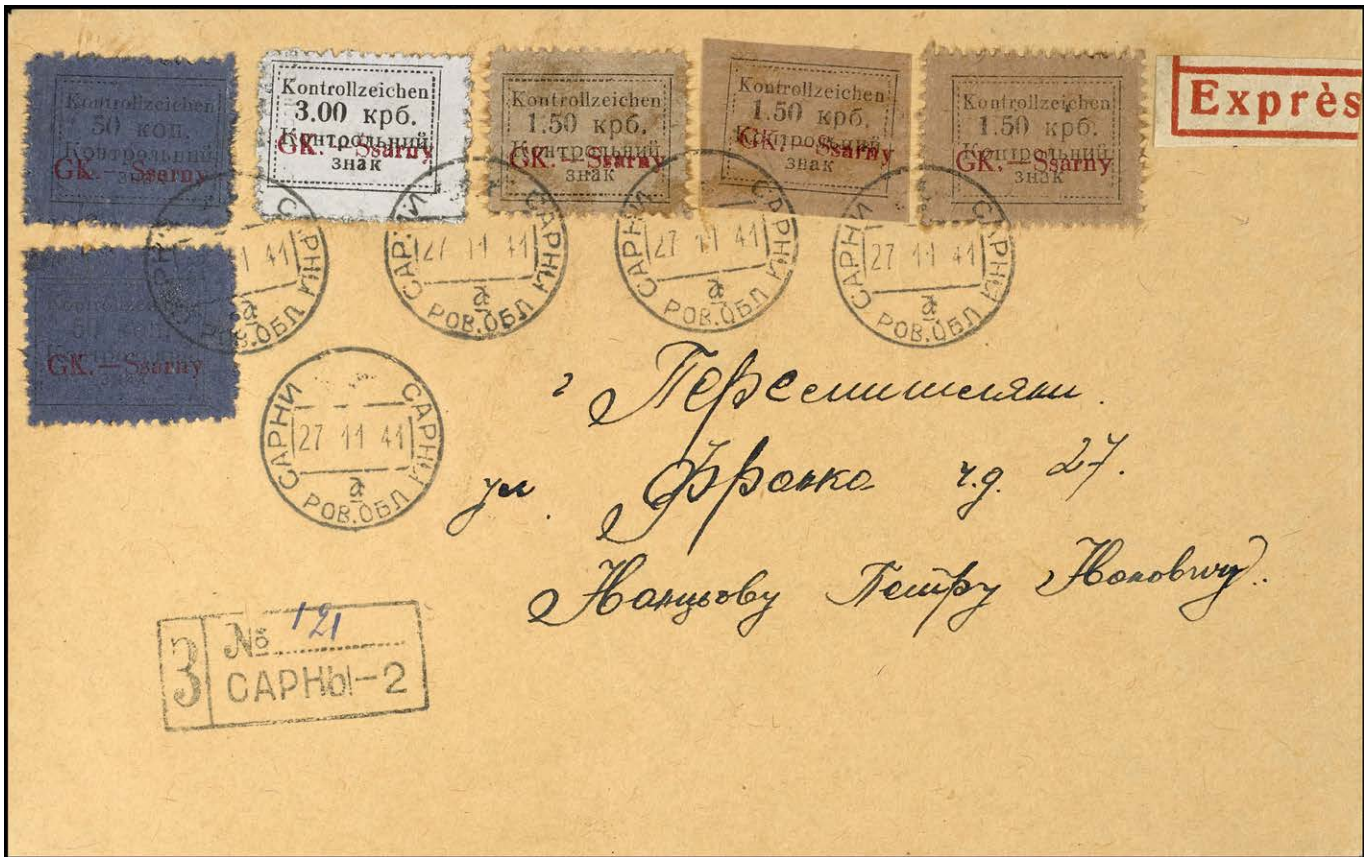 Kontrollzeichen
50 коп.
Контрольний
знак
GK. — Ssarny
Kontrollzeichen
3.00 крб.
Контрольний
знак
GK. — Ssarny
Kontrollzeichen
1.50 крб.
Контрольний
знак
GK. — Ssarny
Kontrollzeichen
1.50 крб.
Контрольний
знак
GK. — Ssarny
Kontrollzeichen
1.50 крб.
Контрольний
знак
GK. — Ssarny
Exprès
Kontrollzeichen
50 коп.
Контрольний
знак
GK. — Ssarny
САРНИ САРНЫ
41
а
РОВ.ОБЛ
САРНИ САРНЫ
27 11 41
а
РОВ.ОБЛ
САРНИ САРНЫ
27 11 41
а
РОВ.ОБЛ
САРНИ САРНЫ
27 11 41
а
РОВ.ОБЛ
САРНИ САРНЫ
27 11 41
а
РОВ.ОБЛ
г
ул. Франка ч.д. 27.
Петру
З № 121
САРНЫ-2